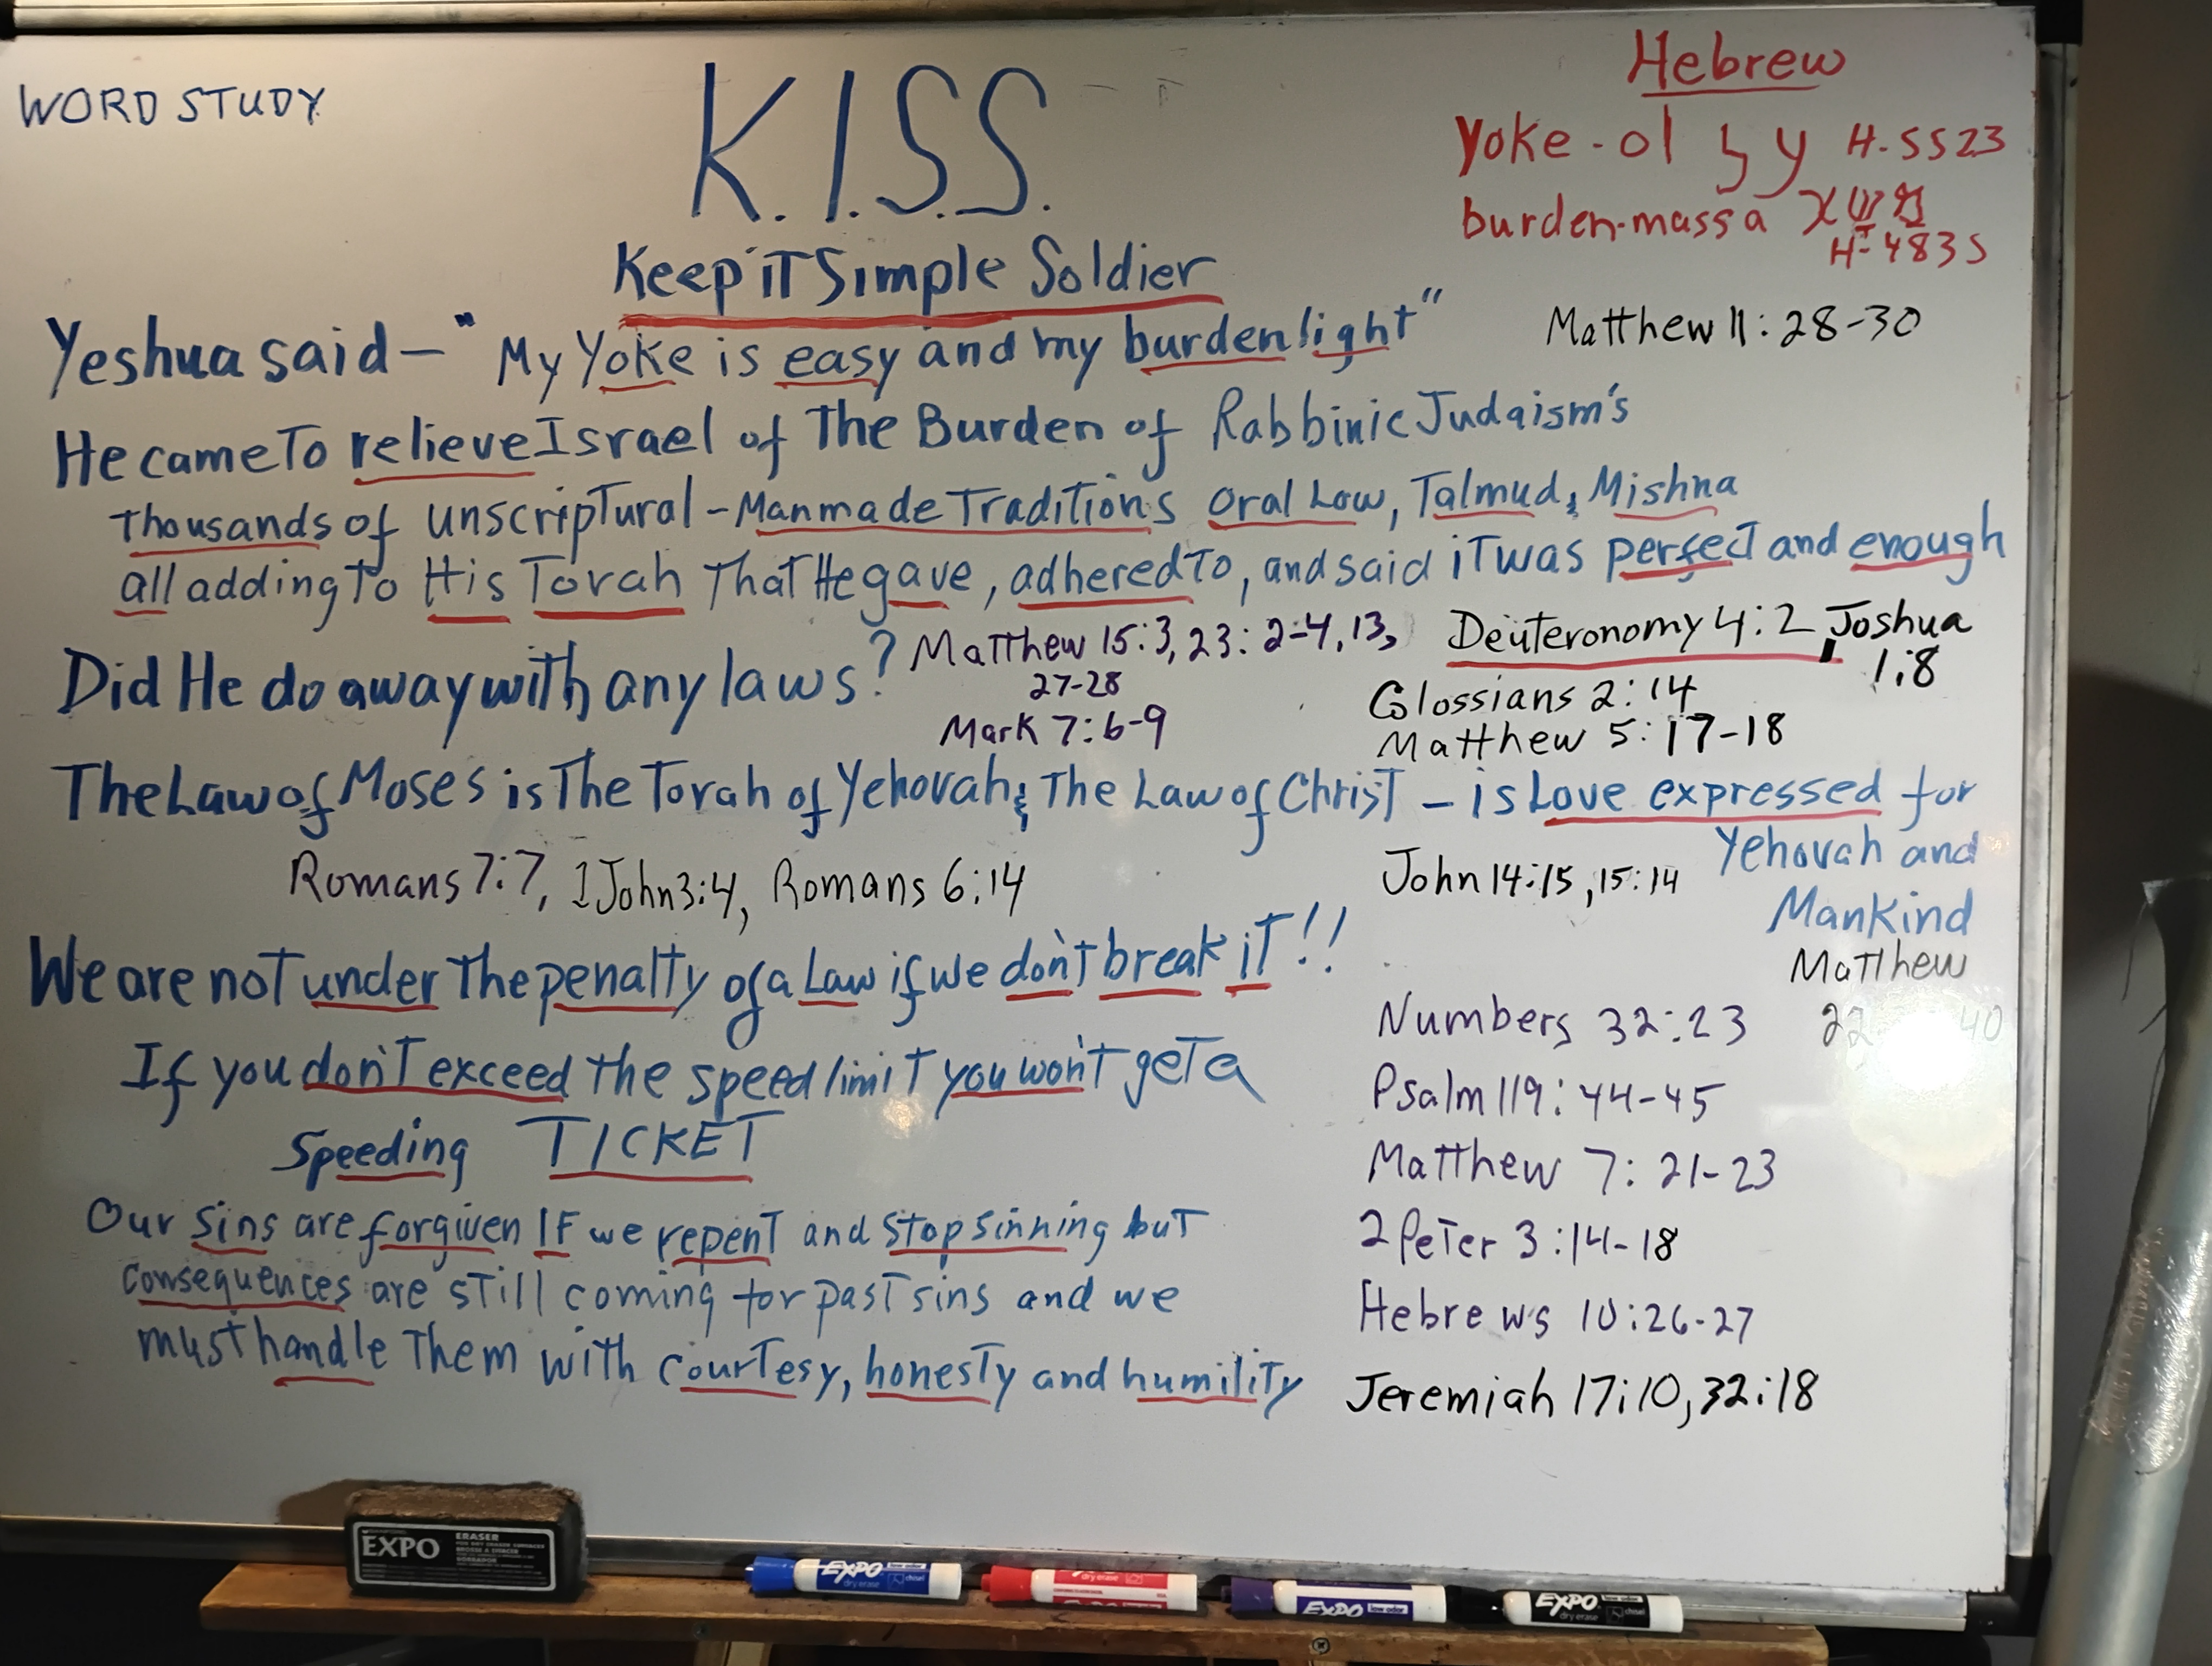 WORD STUDY
K.I.S.S.
Keep iT Simple Soldier
Hebrew
Yoke - ol על H-5523
burden-massa
H-4835
Yeshua said - "My Yoke is easy and my burden light"
Matthew 11:28-30
He came To relieve Israel of The Burden of Rabbinic Judaism's
Thousands of unscripTural - Manmade TradiTions oral Law, Talmud, & Mishna
all adding To His Torah ThaT He gave, adhered To, and said iT was perfecT and enough
Did He do away with any laws?
Matthew 15:3, 23:2-4, 13,
27-28
Mark 7:6-9
Deuteronomy 4:2, Joshua
1:8
Colossians 2:14
Matthew 5:17-18
The Law of Moses is The Torah of Yehovah & The Law of ChrisT - is Love expressed for
Yehovah and
Mankind
Romans 7:7, 1John 3:4, Romans 6:14
John 14:15, 15:14
MaTThew
22 40
We are noT under The penalTy of a Law if we don'T break iT!!
If you don'T exceed the speed limiT you won'T geT a
Speeding TICKET
Our sins are forgiven IF we repenT and stop sinning buT
consequences are sTill coming for pasT sins and we
must handle Them with courTesy, honesTy and humiliTy
Numbers 32:23
Psalm 119:44-45
Matthew 7:21-23
2 PeTer 3:14-18
Hebrews 10:26-27
Jeremiah 17:10, 32:18
EXPO
ERASER
EXPO low odor
dry erase chisel
dry erase
EXPO low odor
EXPO
dry erase chisel